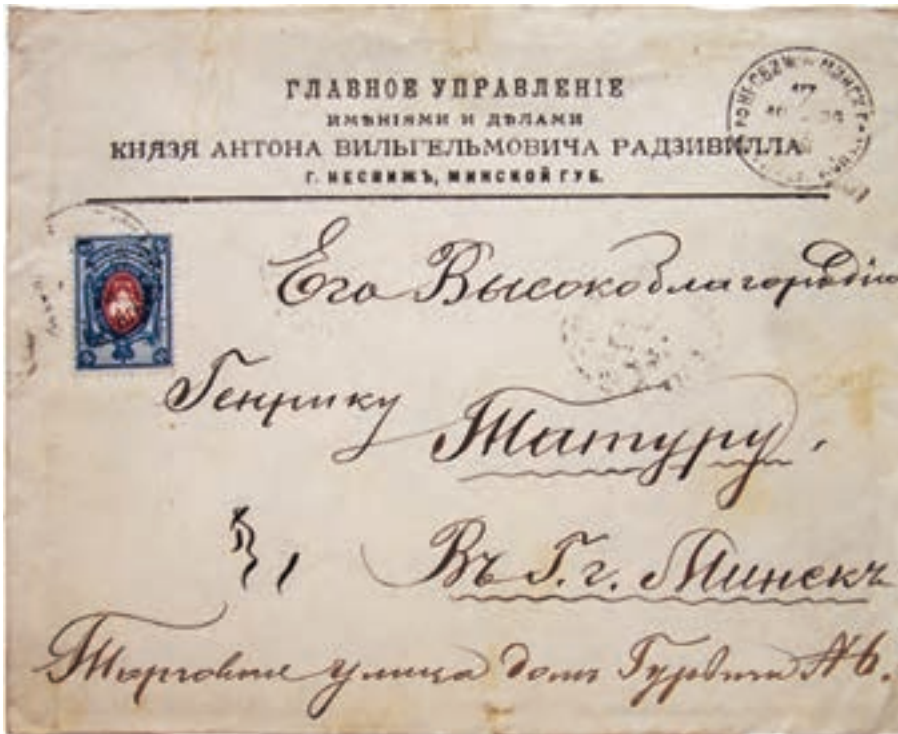 ГЛАВНОЕ УПРАВЛЕНІЕ
ИМѢНІЯМИ И ДѢЛАМИ
КНЯЗЯ АНТОНА ВИЛЬГЕЛЬМОВИЧА РАДЗИВИЛЛА
Г. НЕСВИЖЪ, МИНСКОЙ ГУБ.
Его Высокоблагородію
Генрику Татуру.
Въ Г. г. Минскъ
Торговая улица домъ Гурвича №6.